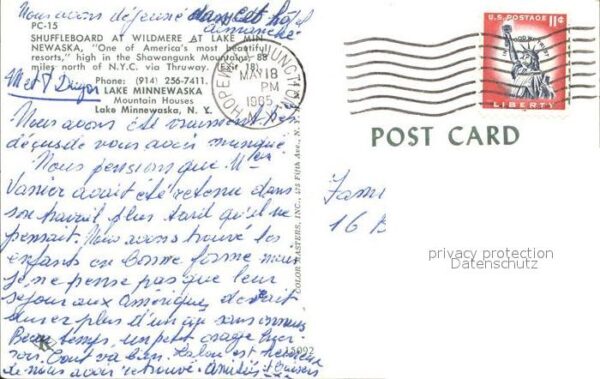 Nous avons déjeuné dans cet hôtel
dimanche
PC-15
SHUFFLEBOARD AT WILDMERE AT LAKE MIN
NEWASKA, "One of America's most beautiful
resorts," high in the Shawangunk Mountains, 88
miles north of N.Y.C. via Thruway. (Exit 18).
Phone: (914) 256-7411.
LAKE MINNEWASKA
Mountain Houses
Lake Minnewaska, N. Y.
HOPEWELL JUNCTION
MAY 18
PM
1965
N.Y.
U.S. POSTAGE 11¢
LIBERTY
POST CARD
Nous avons été vraiment bien
déçus de vous avoir manqué
Nous pensions que Mr
Vanier avait été retenu dans
son travail plus tard qu'il ne
pensait. Nous avons trouvé les
enfants en bonne forme mais
je ne pense pas que leur
séjour aux Amériques devrait
durer plus d'un an sans ennuis
Beau temps, un petit orage hier
soir. Tout va bien. est heureux
de nous avoir retrouvé. Amitiés
COLOR MASTERS, INC., 475 Fifth Ave., N.Y.
15092
K
Fami
16 B
privacy protection
Datenschutz